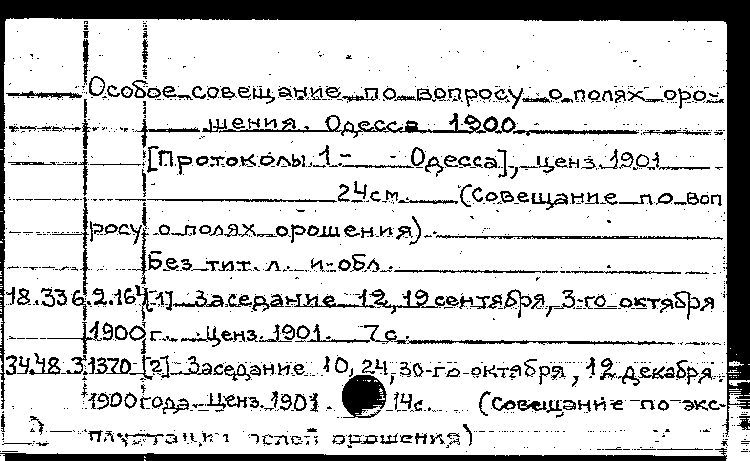 Особое совещание по вопросу о полях оро-
шения. Одесса 1900.
[Протоколы 1 - - Одесса], ценз. 1901
24см. (Совещание по воп
росу о полях орошения).
Без тит. л. и обл.
18.336.2.164 [1] Заседание 12, 19 сентября, 3-го октября
1900 г. Ценз. 1901. 7с.
34.48.3.1370 [2] Заседание 10, 24, 30-го октября, 12 декабря
1900 года. Ценз. 1901. 14с. (Совещание по экс-
плуатации полей орошения)